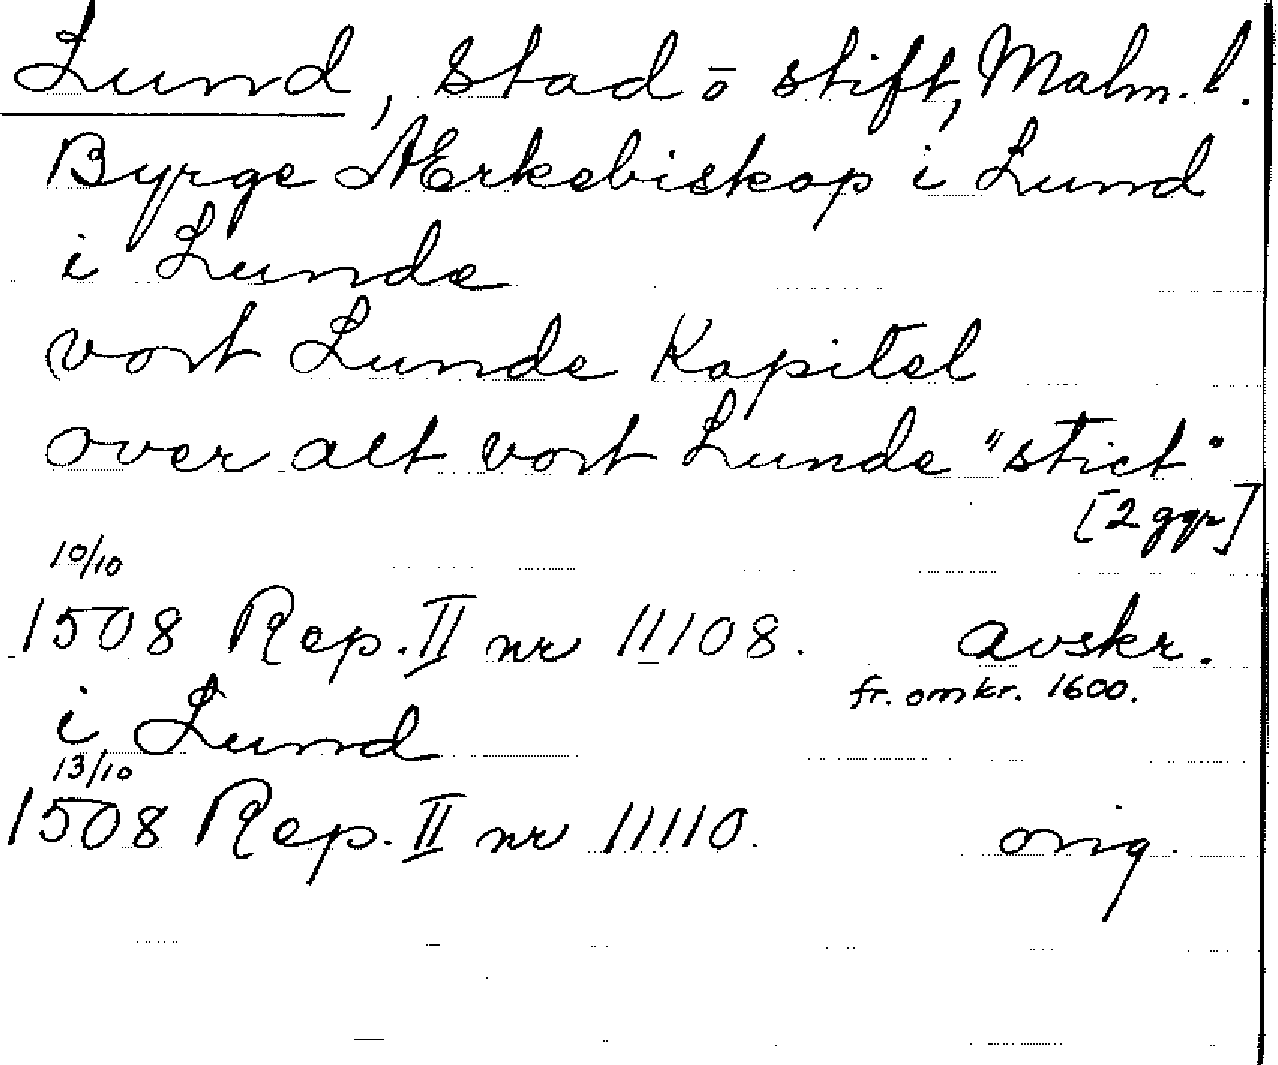 Lund, stad o stift, Malm. l.
Byrge Ærkebiskop i Lund
i Lunde
vort Lunde Kapitel
over alt vort Lunde "stict"
[2 ggr]
10/10
1508 Rep. II nr 11108. avskr.
fr. omkr. 1600.
i Lund
13/10
1508 Rep. II nr 11110. orig.